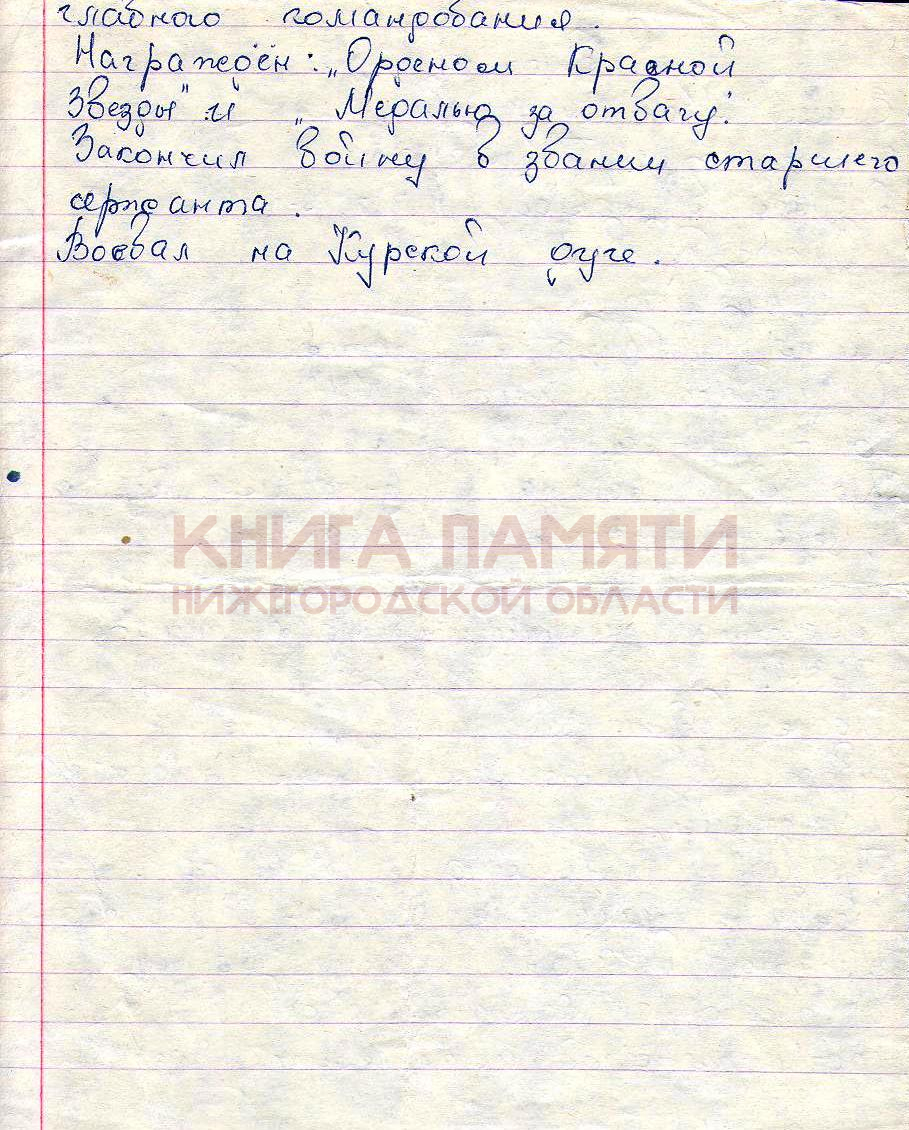 главного командования.
Награждён: „Орденом Красной
Звезды" и „Медалью за отвагу".
Закончил войну в звании старшего
сержанта.
Воевал на Курской дуге.
КНИГА ПАМЯТИ
НИЖЕГОРОДСКОЙ ОБЛАСТИ